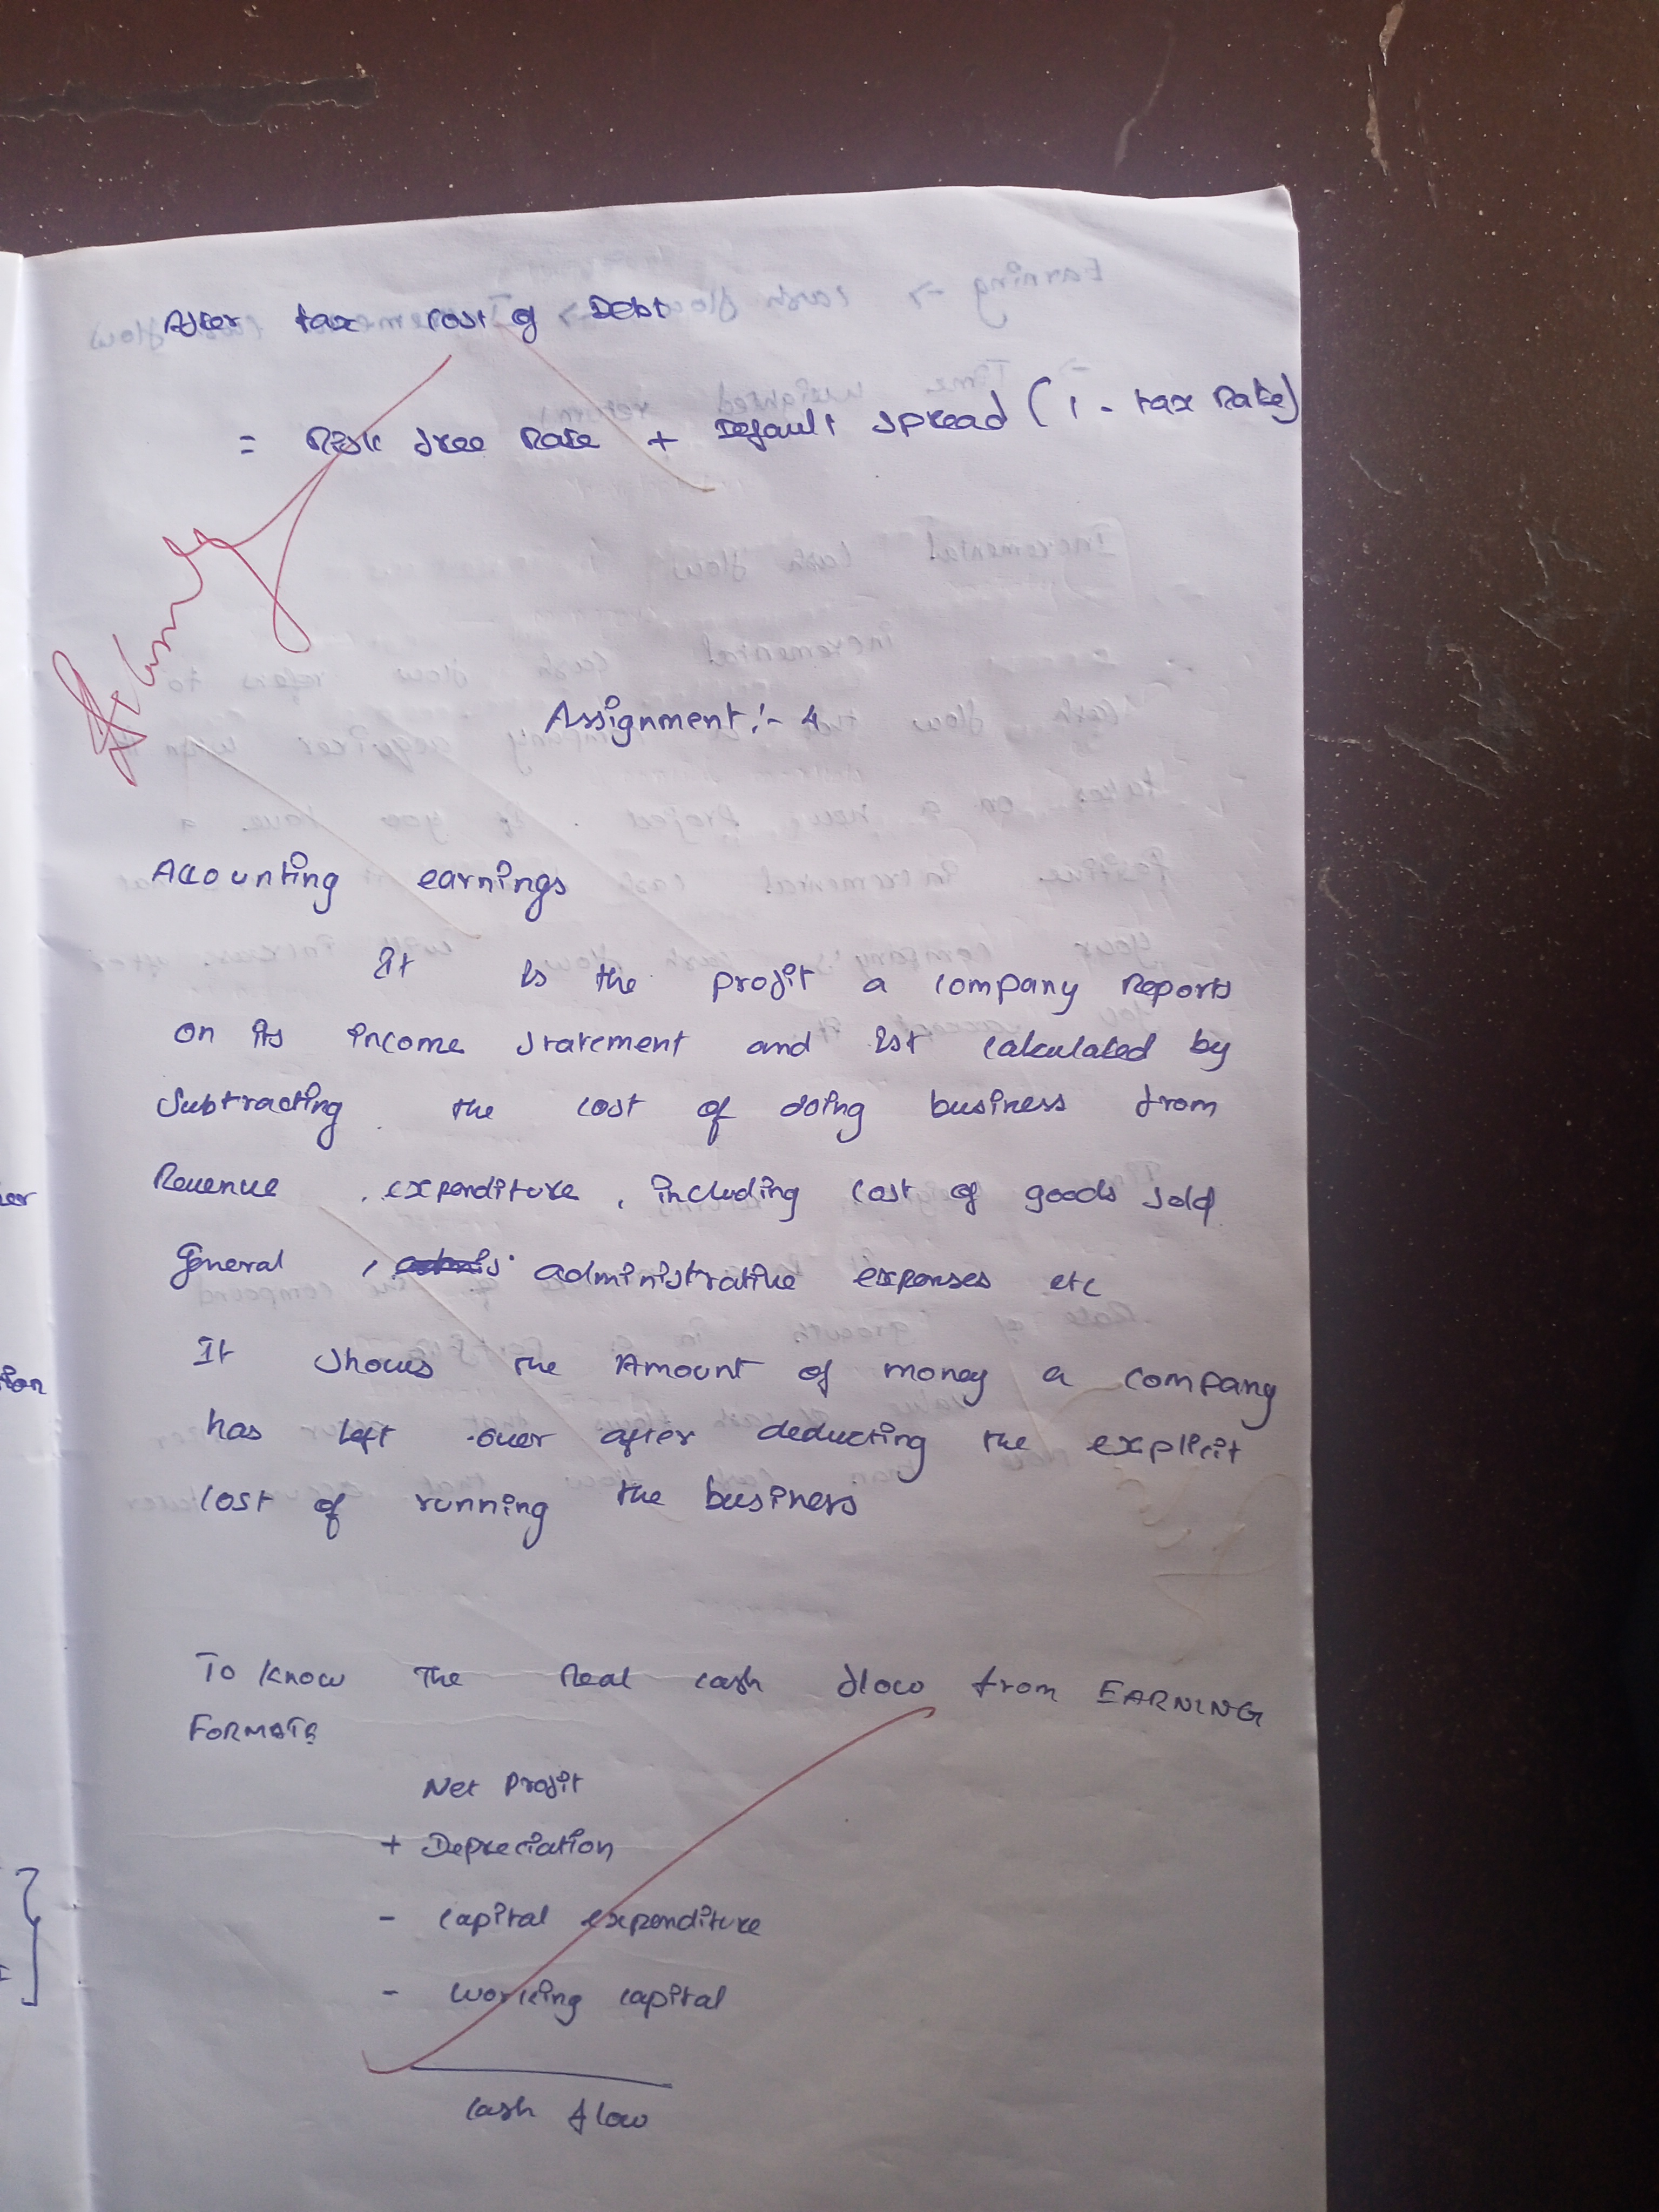 After tax cost of Debt
= Risk free Rate + Default spread (1 - tax Rate)
Assignment :- 4
Accounting earnings
It is the profit a company Reports
on its income statement and ist calculated by
Subtracting the cost of doing business from
Revenue , expenditure , including cost of goods sold
General , administrative expenses etc
It shows the Amount of money a company
has left over after deducting the explicit
cost of running the business
To know The Real cash flow from EARNING
FORMATE
Net Profit
+ Depreciation
- capital expenditure
- working capital
cash flow